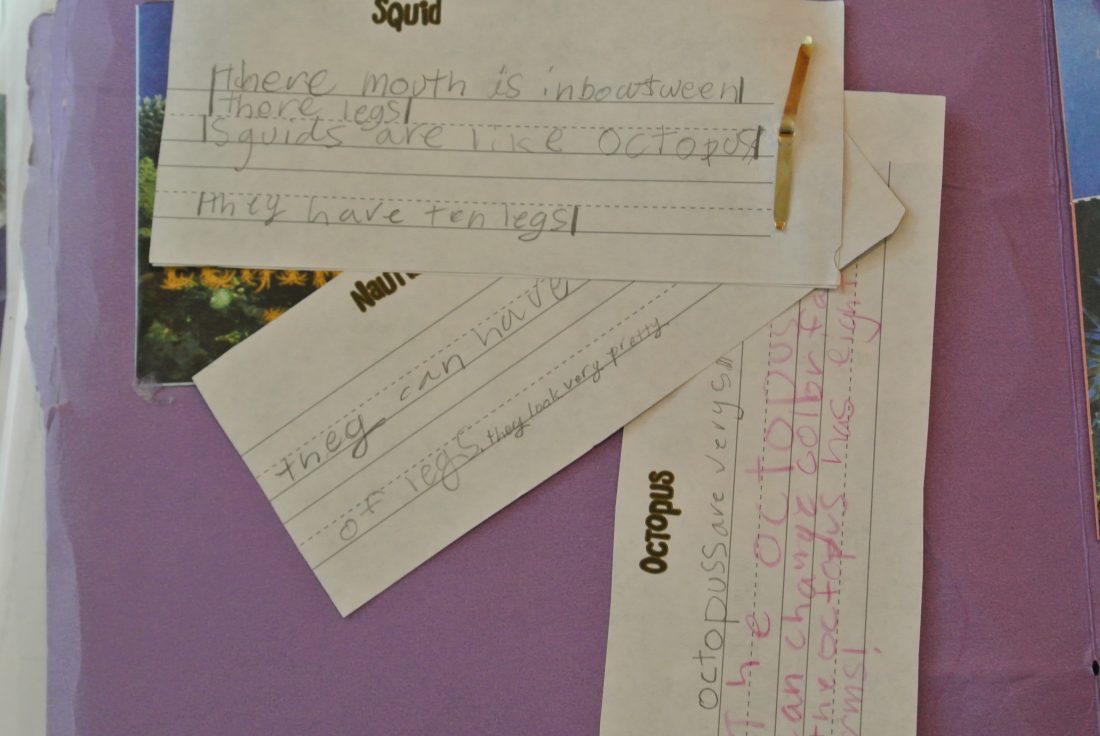 Squid
there mouth is inbowtween
there legs
Squids are like octopus
they have ten legs
they can have
of legs. they look very pretty
Octopus
octopuss are very
The octopus
an change colbr
the octopus has eigh
rms!